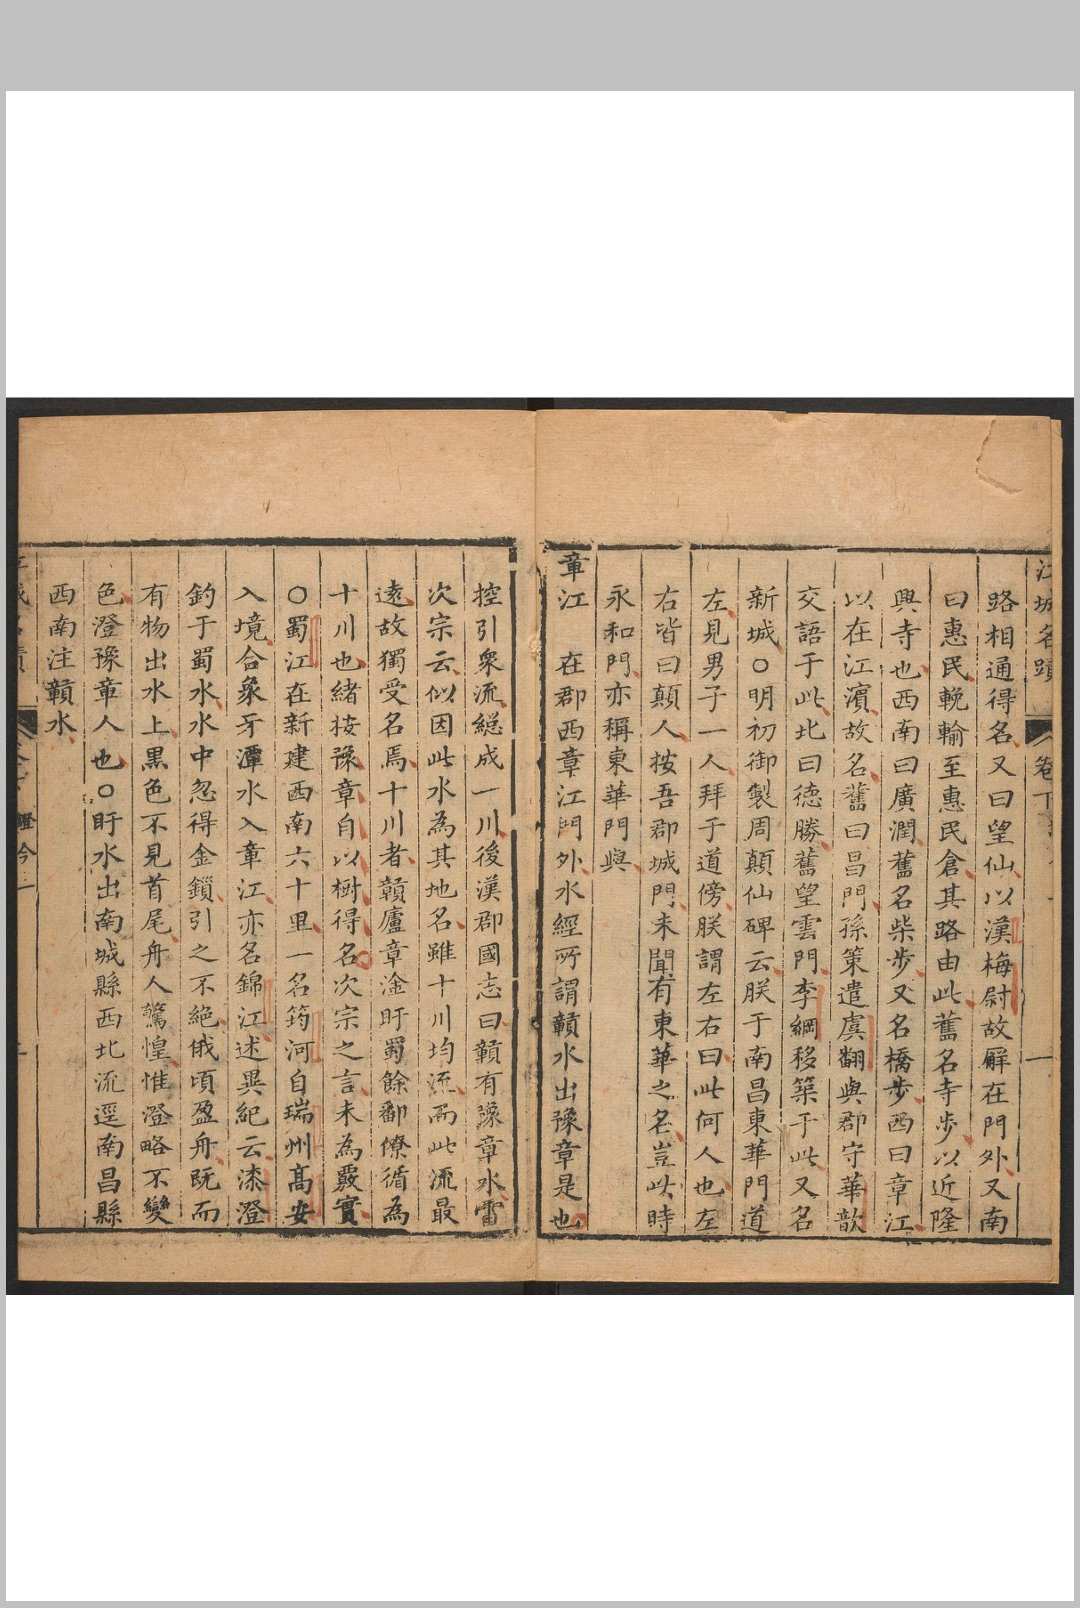 江城名蹟 卷下
路相通得名又曰望仙以漢梅尉故廨在門外又南
曰惠民輓輸至惠民倉其路由此舊名寺步以近隆
興寺也西南曰廣潤舊名柴步又名橋步西曰章江
以在江濵故名舊曰昌門孫策遣虞翻與郡守華歆
交語于此北曰徳勝舊望雲門李綱移築于此又名
新城〇明初御製周顛仙碑云朕于南昌東華門道
左見男子一人拜于道傍朕謂左右曰此何人也左
右皆曰顛人按吾郡城門未聞有東華之名豈此時
永和門亦稱東華門與
章江 在郡西章江門外水經所謂贛水出豫章是也
控引衆流緫成一川後漢郡國志曰贛有豫章水雷
次宗云似因此水為其地名雖十川均流而此流最
遠故獨受名焉十川者贛廬章淦盱蜀餘鄱僚循為
十川也緒接豫章自以樹得名次宗之言未為覈實
〇蜀江在新建西南六十里一名筠河自瑞州高安
入境合象牙潭水入章江亦名錦江述異紀云漆澄
釣于蜀水水中忽得金鎖引之不絶俄頃盈舟既而
有物出水上黒色不見首尾舟人驚惶惟澄略不變
色澄豫章人也〇盱水出南城縣西北流逕南昌縣
西南注贛水